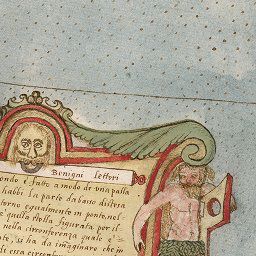 Benigni lettori
ondo è fatto a modo di una palla
habbi. La parte da basso distesa
torno egualmente in ponte nel
è quella della figurata per il
nella circonferenza quale è
, si ha da imaginare che in
di essa